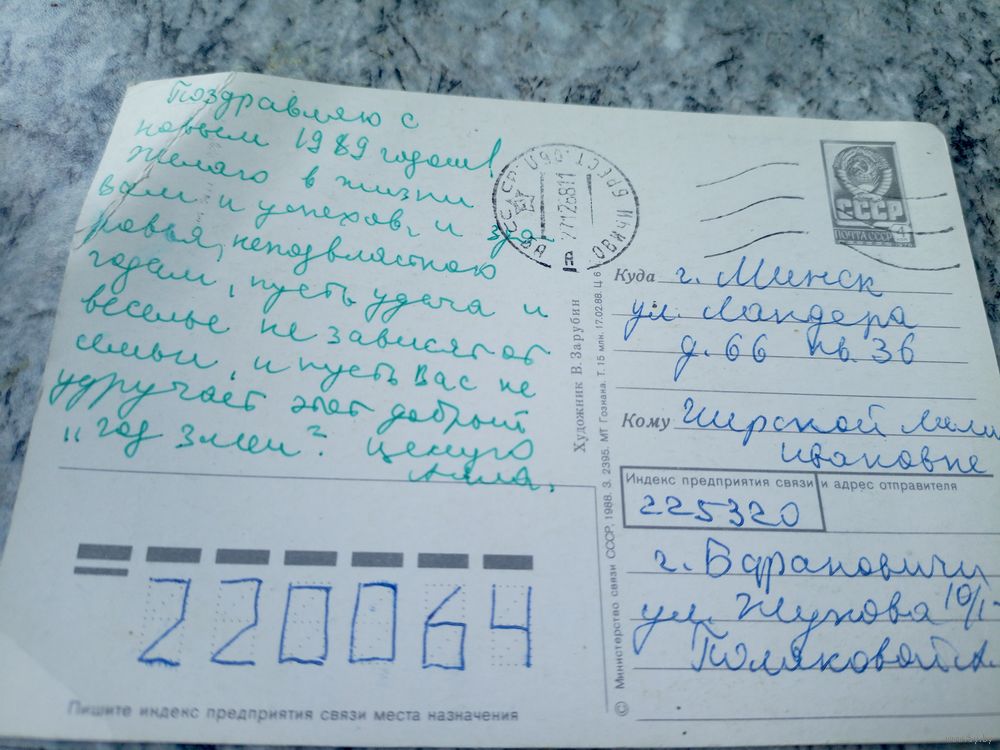 Поздравляю с
новым 1989 годом!
Желаю в жизни
вам и успехов, и здо-
ровья, неподвластного
годам, пусть удача и
веселье не зависят от
семьи, и пусть Вас не
удручает этот добрый
"год змеи". Целую
Алла.
БРЕСТ. ОБЛ.
271268811
СССР
ПОЧТА СССР
4
Куда г. Минск
ул. Ландера
д. 66 кв. 36
Кому Ширской
Ивановне
Индекс предприятия связи и адрес отправителя
225320
г. Барановичи
ул. Жукова 10/1-
Поляковой А.
220064
Пишите индекс предприятия связи места назначения
Художник В. Зарубин
© Министерство связи СССР, 1988. З. 2395. МТ Гознака. Т. 15 млн. 17.02.88. Ц 6